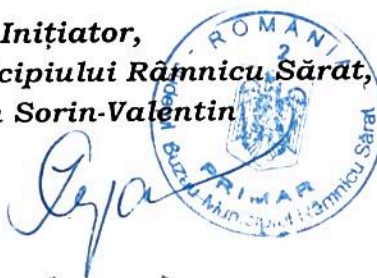 Inițiator,
cipiului Râmnicu Sărat,
Sorin-Valentin
ROMÂNIA
2
Județul Buzău-Municipiul Râmnicu Sărat
PRIMAR